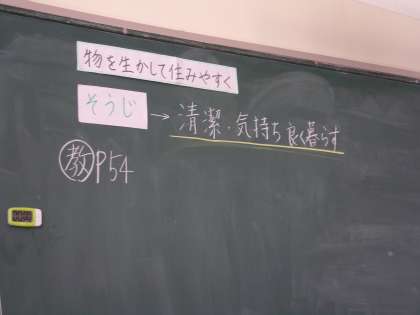 物を生かして住みやすく
そうじ → 清潔・気持ち良く暮らす
教 P54